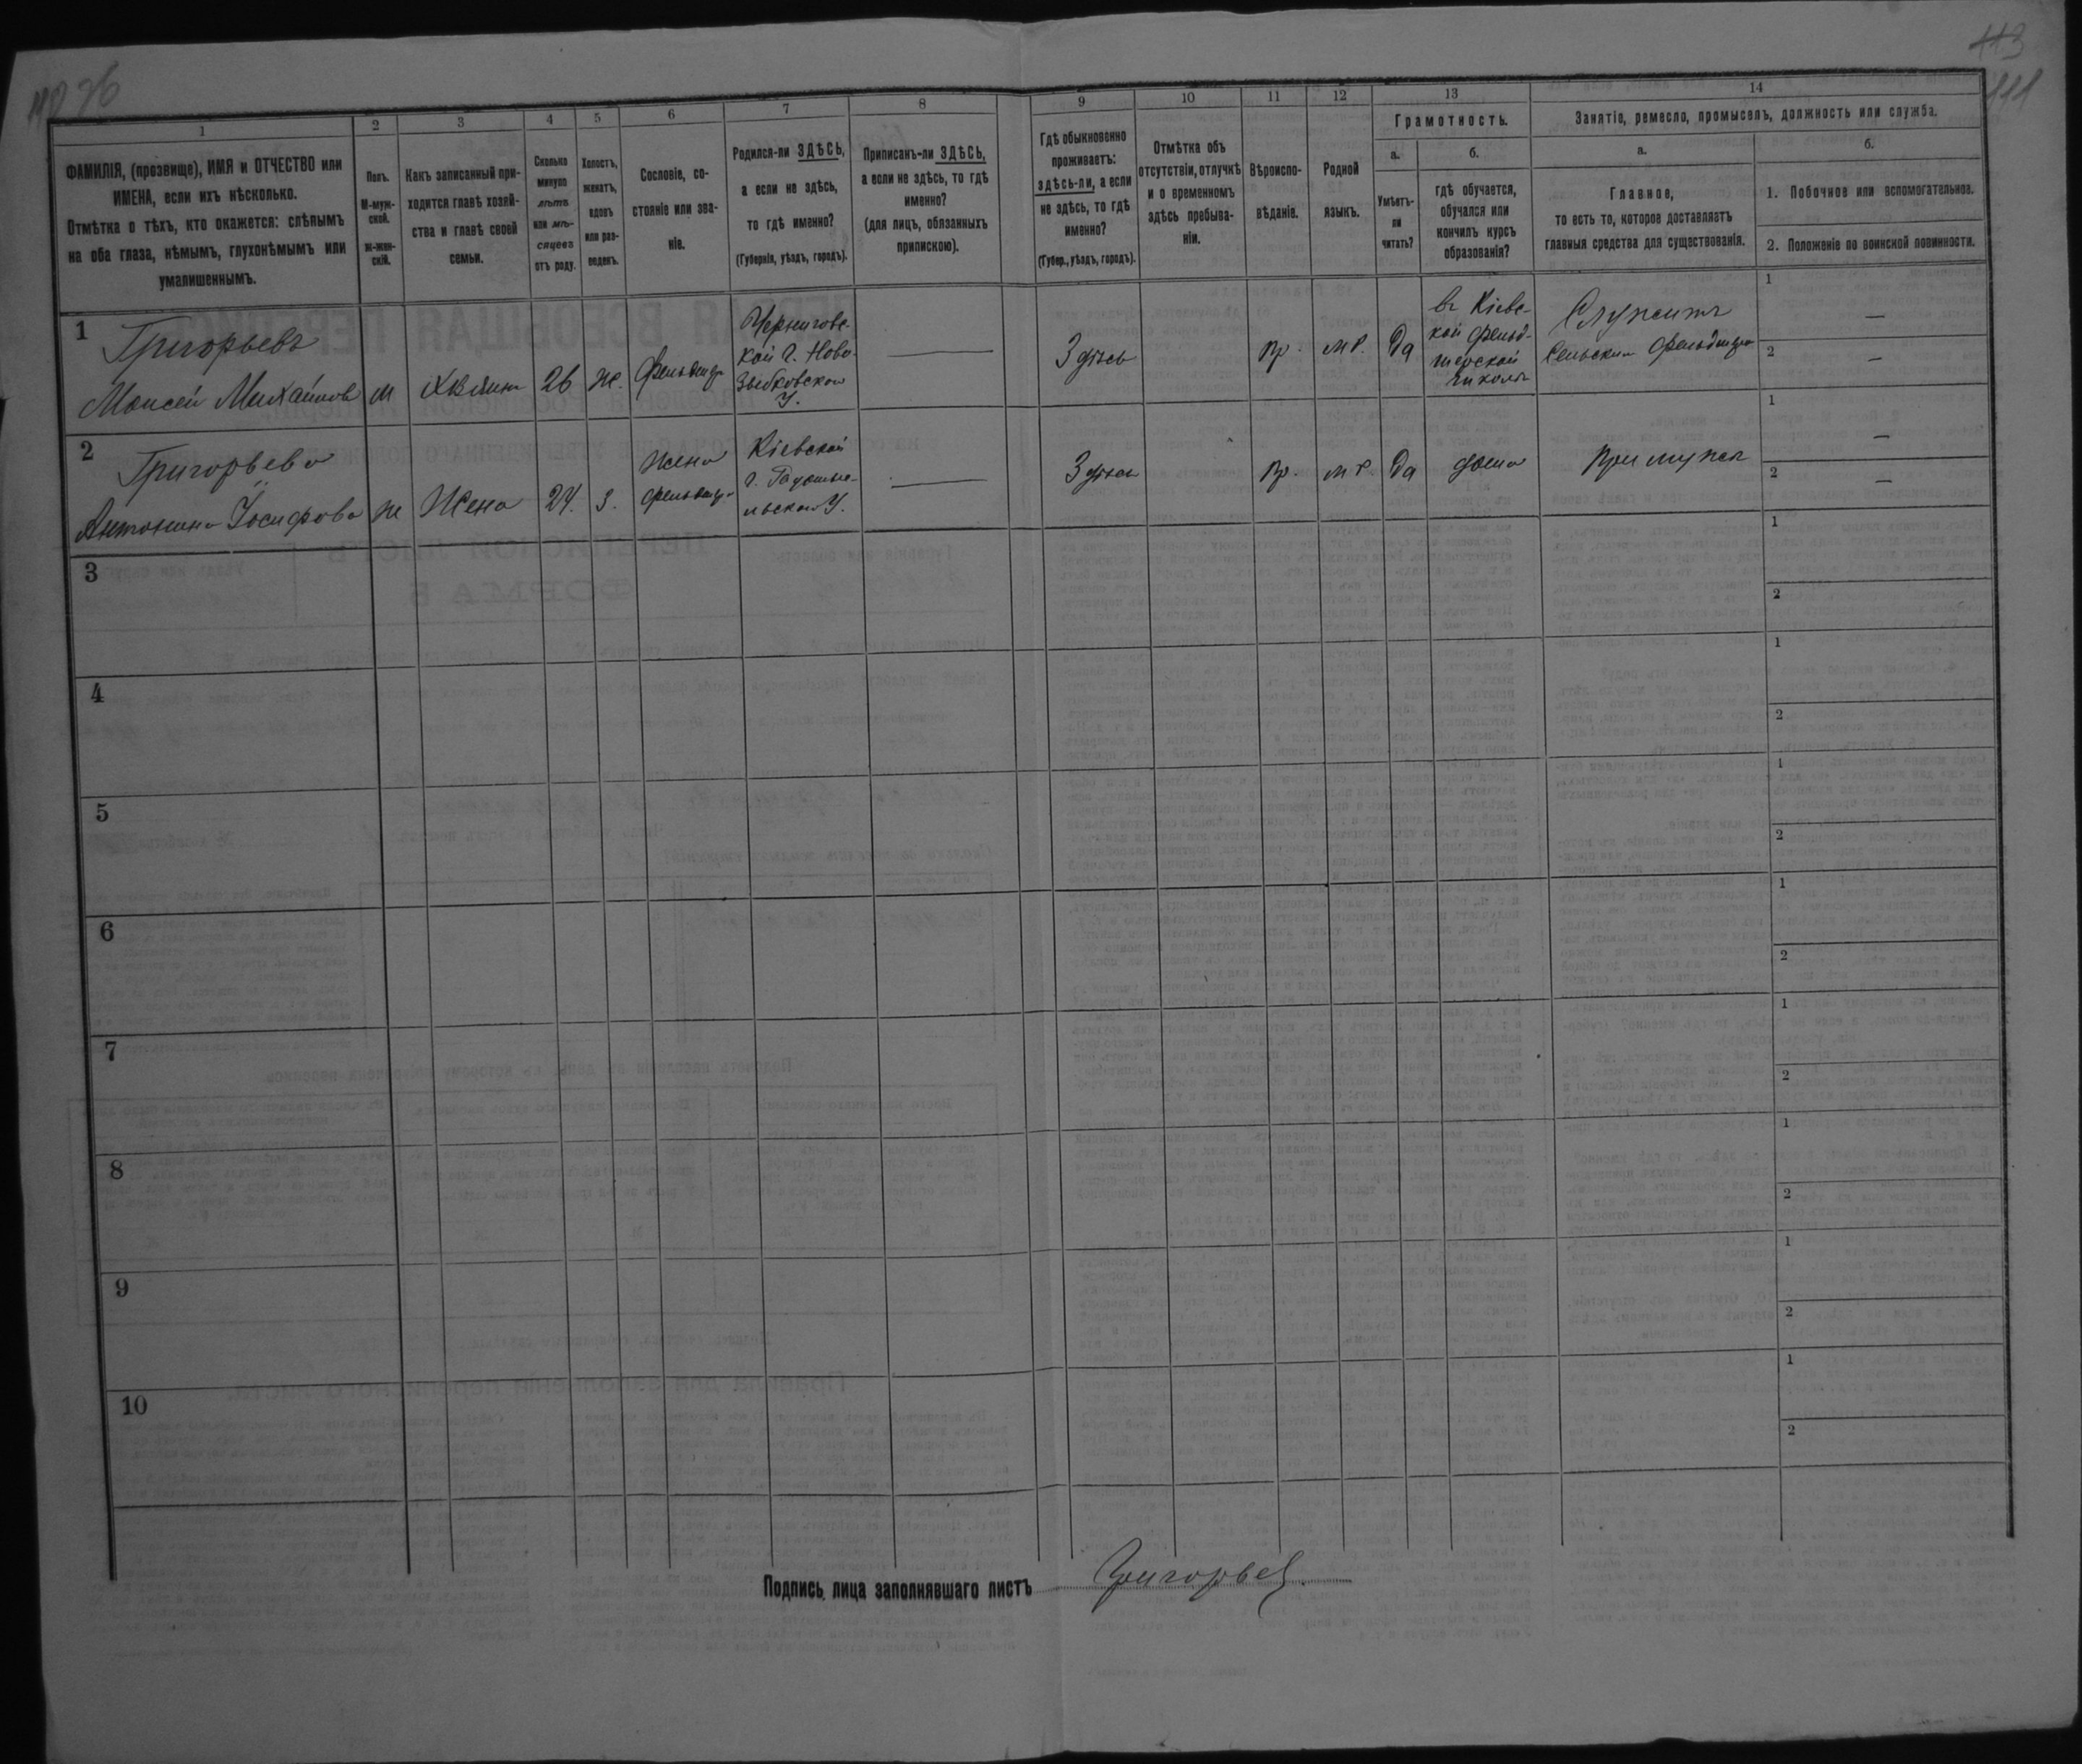 113
111
1
2
3
4
5
6
7
8
9
10
11
12
13
14
ФАМИЛІЯ, (прозвище), ИМЯ и ОТЧЕСТВО или
ИМЕНА, если ихъ нѣсколько.
Отмѣтка о тѣхъ, кто окажется: слѣпымъ
на оба глаза, нѣмымъ, глухонѣмымъ или
умалишеннымъ.
Полъ.
М-муж-
ской.
Ж-жен-
скій.
Какъ записанный при-
ходится главѣ хозяй-
ства и главѣ своей
семьи.
Сколько
минуло
лѣтъ
или мѣ-
сяцевъ
отъ роду.
Холостъ,
женатъ,
вдовъ
или раз-
веденъ.
Сословіе, со-
стояніе или зва-
ніе.
Родился-ли ЗДѢСЬ,
а если не здѣсь,
то гдѣ именно?
(Губернія, уѣздъ, городъ).
Приписанъ-ли ЗДѢСЬ,
а если не здѣсь, то гдѣ
именно?
(для лицъ, обязанныхъ
припискою).
Гдѣ обыкновенно
проживаетъ:
здѣсь-ли, а если
не здѣсь, то гдѣ
именно?
(Губер., уѣздъ, городъ).
Отмѣтка объ
отсутствіи, отлучкѣ
и о временномъ
здѣсь пребыва-
ніи.
Вѣроиспо-
вѣданіе.
Родной
языкъ.
Грамотность.
а.
Умѣетъ-
ли
читать?
б.
гдѣ обучается,
обучался или
кончилъ курсъ
образованія?
Занятіе, ремесло, промыселъ, должность или служба.
а.
Главное,
то есть то, которое доставляетъ
главныя средства для существованія.
б.
1. Побочное или вспомогательное.
2. Положеніе по воинской повинности.
1
Григорьевъ
Моисей Михайловъ
м
26
ж.
Фельдшер
Черниговс-
кой г. Ново-
зыбковского
у.
Здѣсь
пр.
м р.
Да
въ Кіевс-
кой фельд-
шерской
школѣ
Служитъ
сельским фельдшером
1
—
2
—
2
Григорьева
Антонина Іосифова
ж
Жена
24.
з.
жена
фельдшера
Кіевской
г. Радомыс-
льского у.
Здѣсь
пр.
м р.
Да
дома
при мужѣ
1
—
2
—
3
1
2
4
1
2
5
1
2
6
1
2
7
1
2
8
1
2
9
1
2
10
1
2
Подпись лица заполнявшаго листъ
Григорьев.